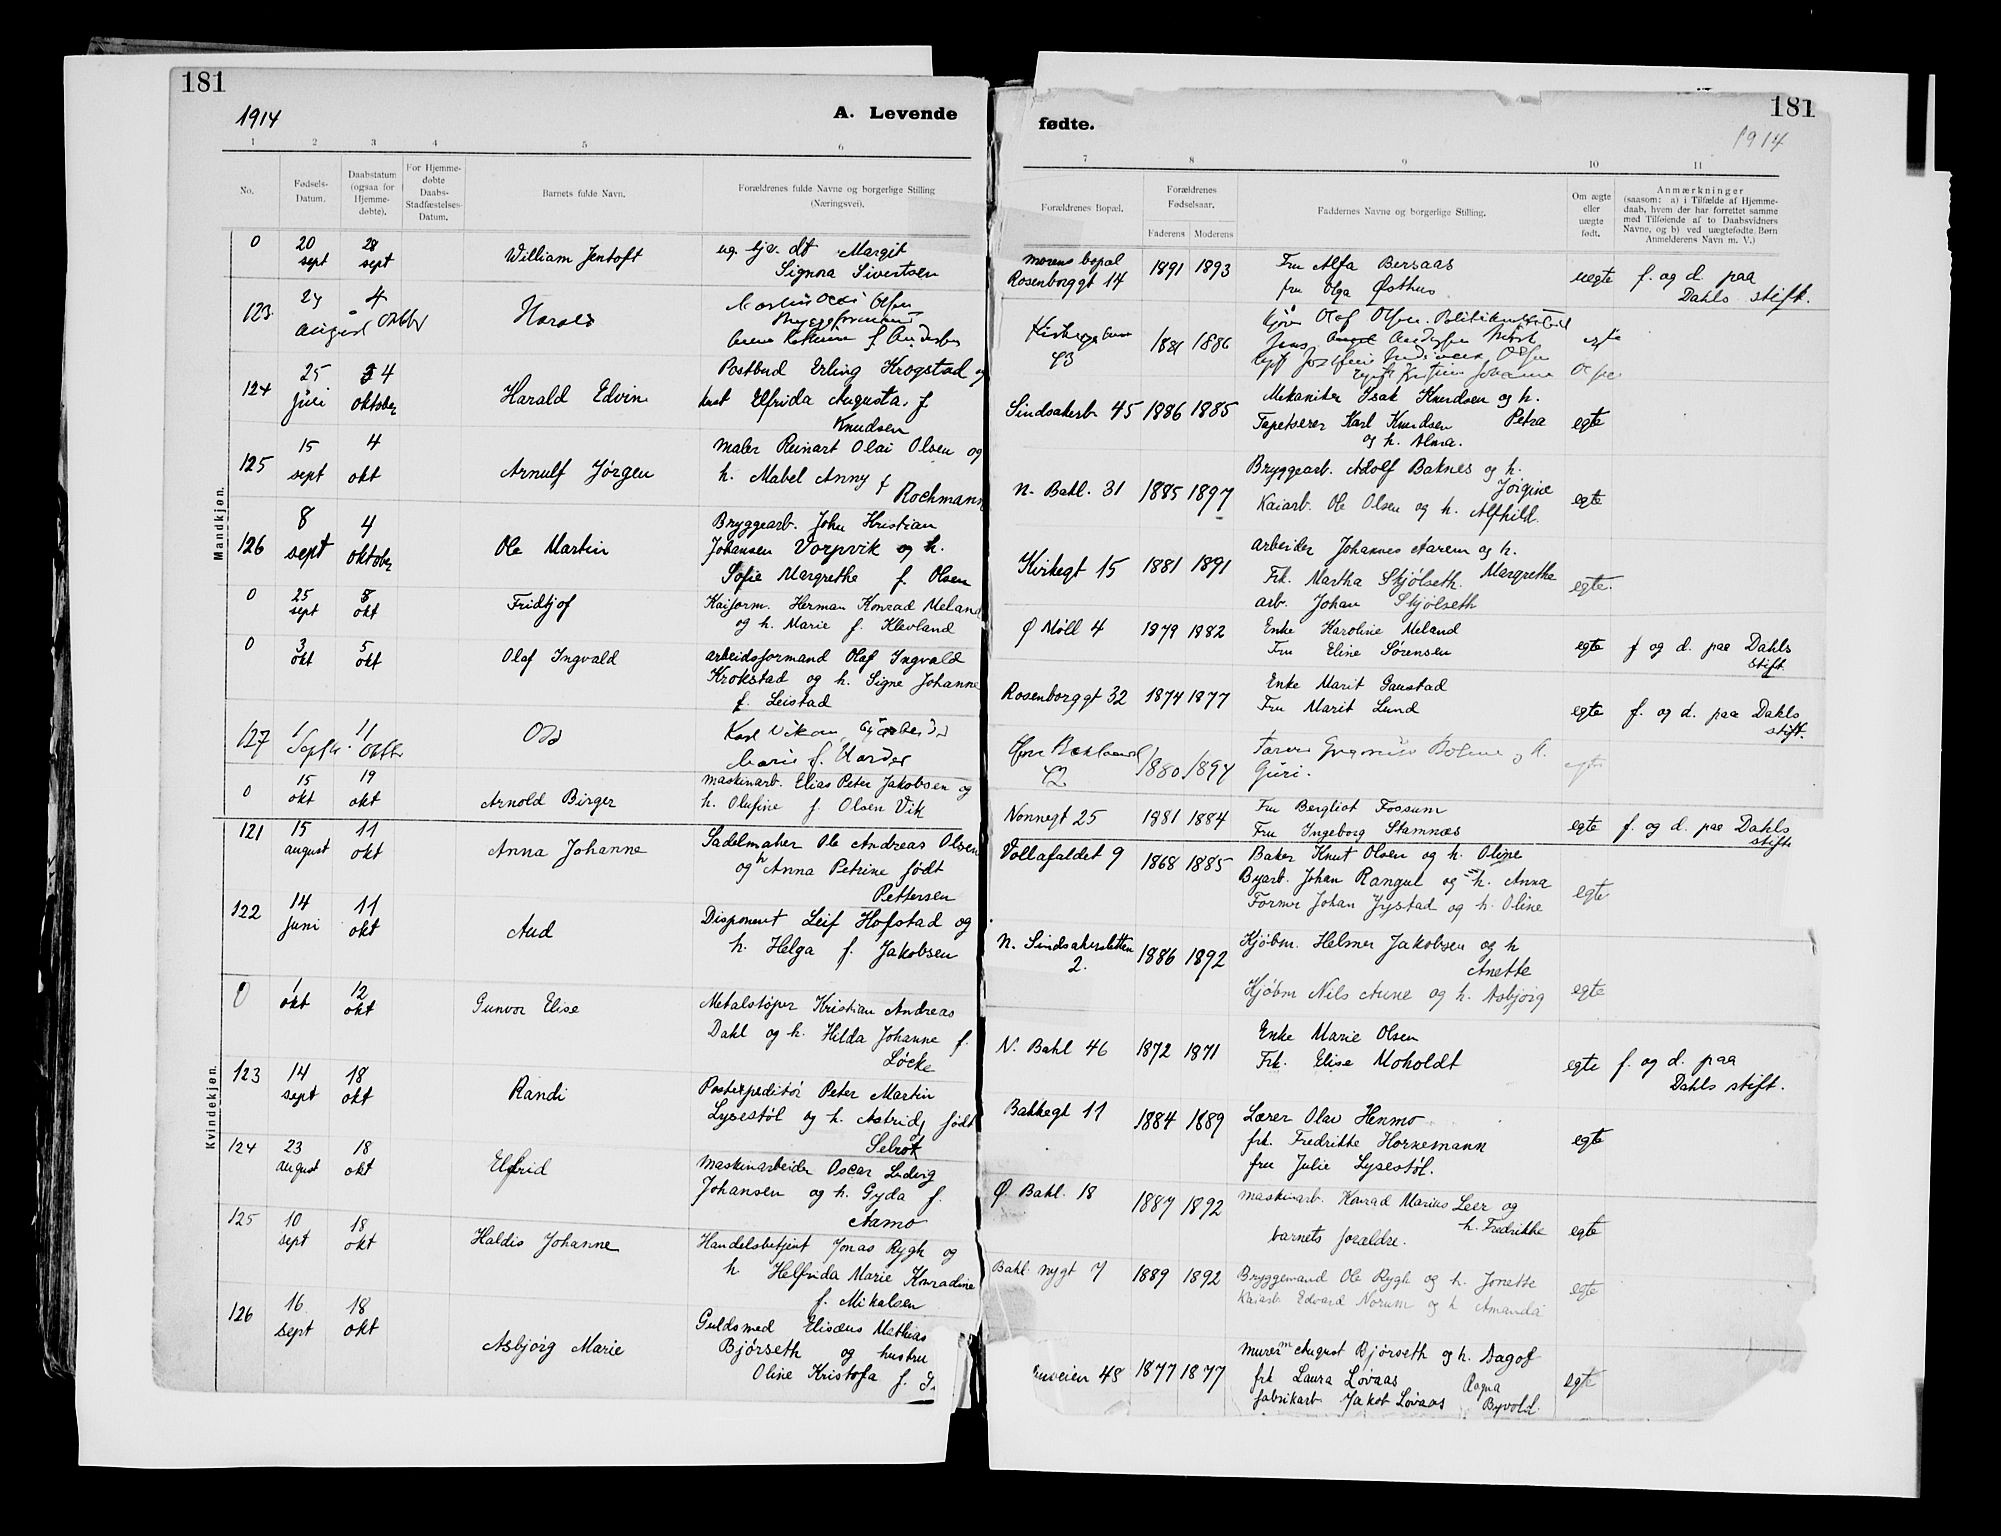 181
1914
A. Levende
1 2 3 4 5 6
No.
Fødsels-Datum.
Daabsdatum (ogsaa for Hjemme-døbte).
For Hjemme-døbte Daabs-Stadfæstelses-Datum.
Barnets fulde Navn.
Forældrenes fulde Navne og borgerlige Stilling (Næringsvei).
Mandkjøn.
0 20 sept 28 sept William Jentoft
ug. tjv. dt Margit
Signora Sivertsen
123 24 august 4 Harald
124 25 juli 4 oktober Harald Edvin
Postbud Erling Krogstad og
hust Elfrida Augusta. f
Knudsen
125 15 sept 4 okt Arnulf Jørgen
maler Reinart Olai Olsen og
h. Mabel Anny f
Rochmann
126 8 sept 4 oktober Ole Martin
Bryggearb. John Kristian
Johansen Vorpvik og h.
Sofie Margrethe f. Olsen
0 25 sept 8 okt Fridtjof
Kaiform. Herman Konrad Meland
og h. Marie f. Klevland
0 3 okt 5 okt Olaf Ingvald
arbeidsformand Olaf Ingvald
Krokstad og h. Signe Johanne
f. Leistad
127 1 Septbr. 11 Oktbr Odd
Karl
0 15 okt 19 okt Arnold Birger
maskinarb. Elias Peter Jakobsen og
h. Olufine f Olsen Vik
Kvindekjøn.
121 15 august 11 okt Anna Johanne
Sadelmaker Ole Andreas Olsen
og h Anna Petrine født
Pettersen
122 14 juni 11 okt Aud
Disponent Leif Hofstad og
h. Helga f. Jakobsen
0 1 okt 12 okt Gunvor Elise
Metalstøper Kristian Andreas
Dahl og h. Hilda Johanne f.
Løcke
123 14 sept 18 okt Randi
Postexpeditør Peter Martin
Lysestøl og h. Astrid, født
124 23 august 18 okt Elfrid
Maskinarbeider Oscar Ludvig
Johansen og h. Gyda f.
Aamo
125 10 sept 18 okt Haldis Johanne
Handelsbetjent Jonas Rygh og
h. Helfrida Marie Konradine
f. Mikalsen
126 16 sept 18 okt Asbjørg Marie
Guldsmed Elisæus Mathias
Bjørseth og hustru
Oline Kristofa f.
181
1914
fødte.
7 8 9 10 11
Forældrenes Bopæl.
Forældrenes Fødselsaar.
Faderens Moderens
Faddernes Navne og borgerlige Stilling.
Om ægte eller uægte født.
Anmærkninger
(saasom: a) i Tilfælde af Hjemme-
daab, hvem der har forrettet samme
med Tilføiende af to Daabsvidners
Navne, og b) ved uægtefødte Børn
Anmelderens Navn m. V.)
morens bopæl
Rosenborggt 14 1891 1893
Fru Alfa Bersaas
fru Olga Østhus
uegte
f. og d. paa
Dahls stift.
43 1886
Sindsakerb 45 1886 1885
Mekaniker Isak Knudsen og h.
Petra
Tapetserer Karl Knudsen
og h. Alma.
egte
N. Bakl. 31 1885 1897
Bryggearb. Adolf Baknes og h.
Jørgine
Kaiarb. Ole Olsen og h. Alfhild.
egte
Kirkegt 15 1881 1891
arbeider Johannes Aarem og h.
Margrethe
Frk. Martha Skjølseth.
arb. Johan Skjølseth
egte.
Ø Møll 4 1879 1882
Enke Karoline Meland
Fru Eline Sørensen
egte f og d. paa Dahls
stift
Rosenborggt 32 1874 1877
Enke Marit Gaustad
Fru Marit Lund
egte f. og d. paa Dahls
stift.
42 1880 1894
Guri.
egte
Nonnegt 25 1881 1884
Fru Bergliot Fossum
Fru Ingeborg Stamnæs
egte f. og d. paa Dahls
stift
Vollafaldet 9 1868 1885
Baker Knut Olsen og h. Oline
Byarb. Johan Rangul og h. Anna
Former Johan Jystad og h. Oline
egte
N. Sindsakersletten
2. 1886 1892
Kjøbm. Helmer Jakobsen og h
Anette
Kjøbm Nils Aune og h. Asbjørg
egte
N. Bakl 46 1872 1871
Enke Marie Olsen
Frk. Elise Moholdt
egte f. og d. paa
Dahls stift.
Bakkegt 11 1884 1889
Lærer Olav Henmo
frk. Fredrikke Hornemann
fru Julie Lysestøl.
egte
Ø. Bakl. 18 1887 1892
maskinarb. Konrad Marius Leer og
h. Fredrikke
barnets forældre.
egte
Bakl. nygt 7 1889 1892
Bryggemand Ole Rygh og h. Jonette
Kaiarb Edvard Norum og h Amanda
egte
48 1877 1877
murerm August Bjørseth og h. Dagof
frk Laura Løvaas Ragna
fabrikarb Jakob Løvaas Byvold
egte